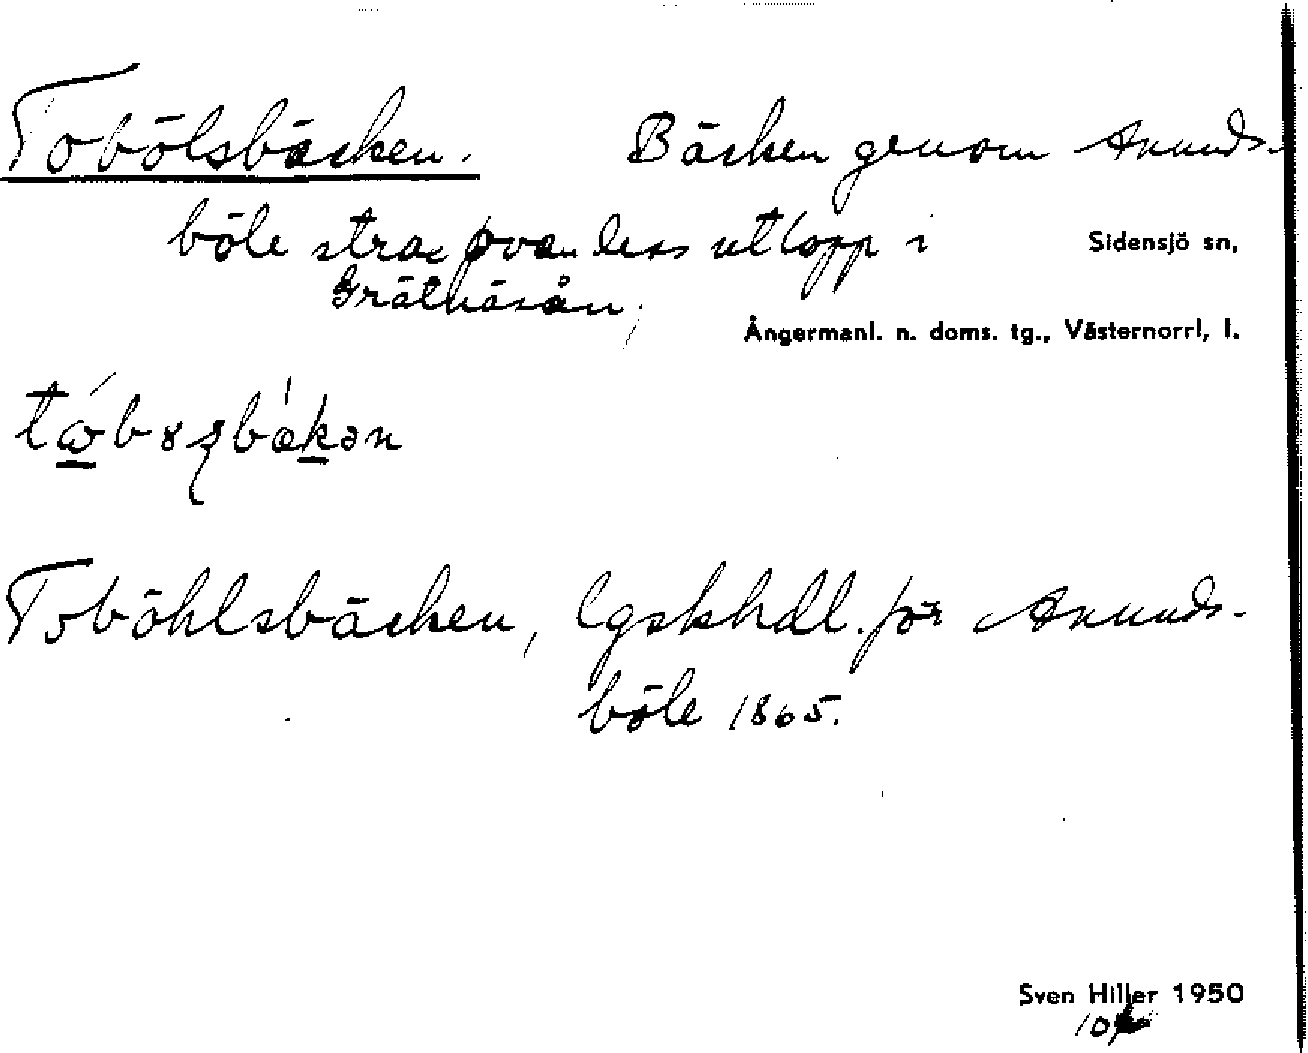 Tobölsbäcken. Bäcken genom Anunds-
böle strax ovan dess utlopp i
Sidensjö sn,
Grätnäsån,
Ångermanl. n. doms. tg., Västernorrl, l.
Toböhlsbäcken, lgskhdl. för Anunds-
böle 1865.
Sven Hiller 1950